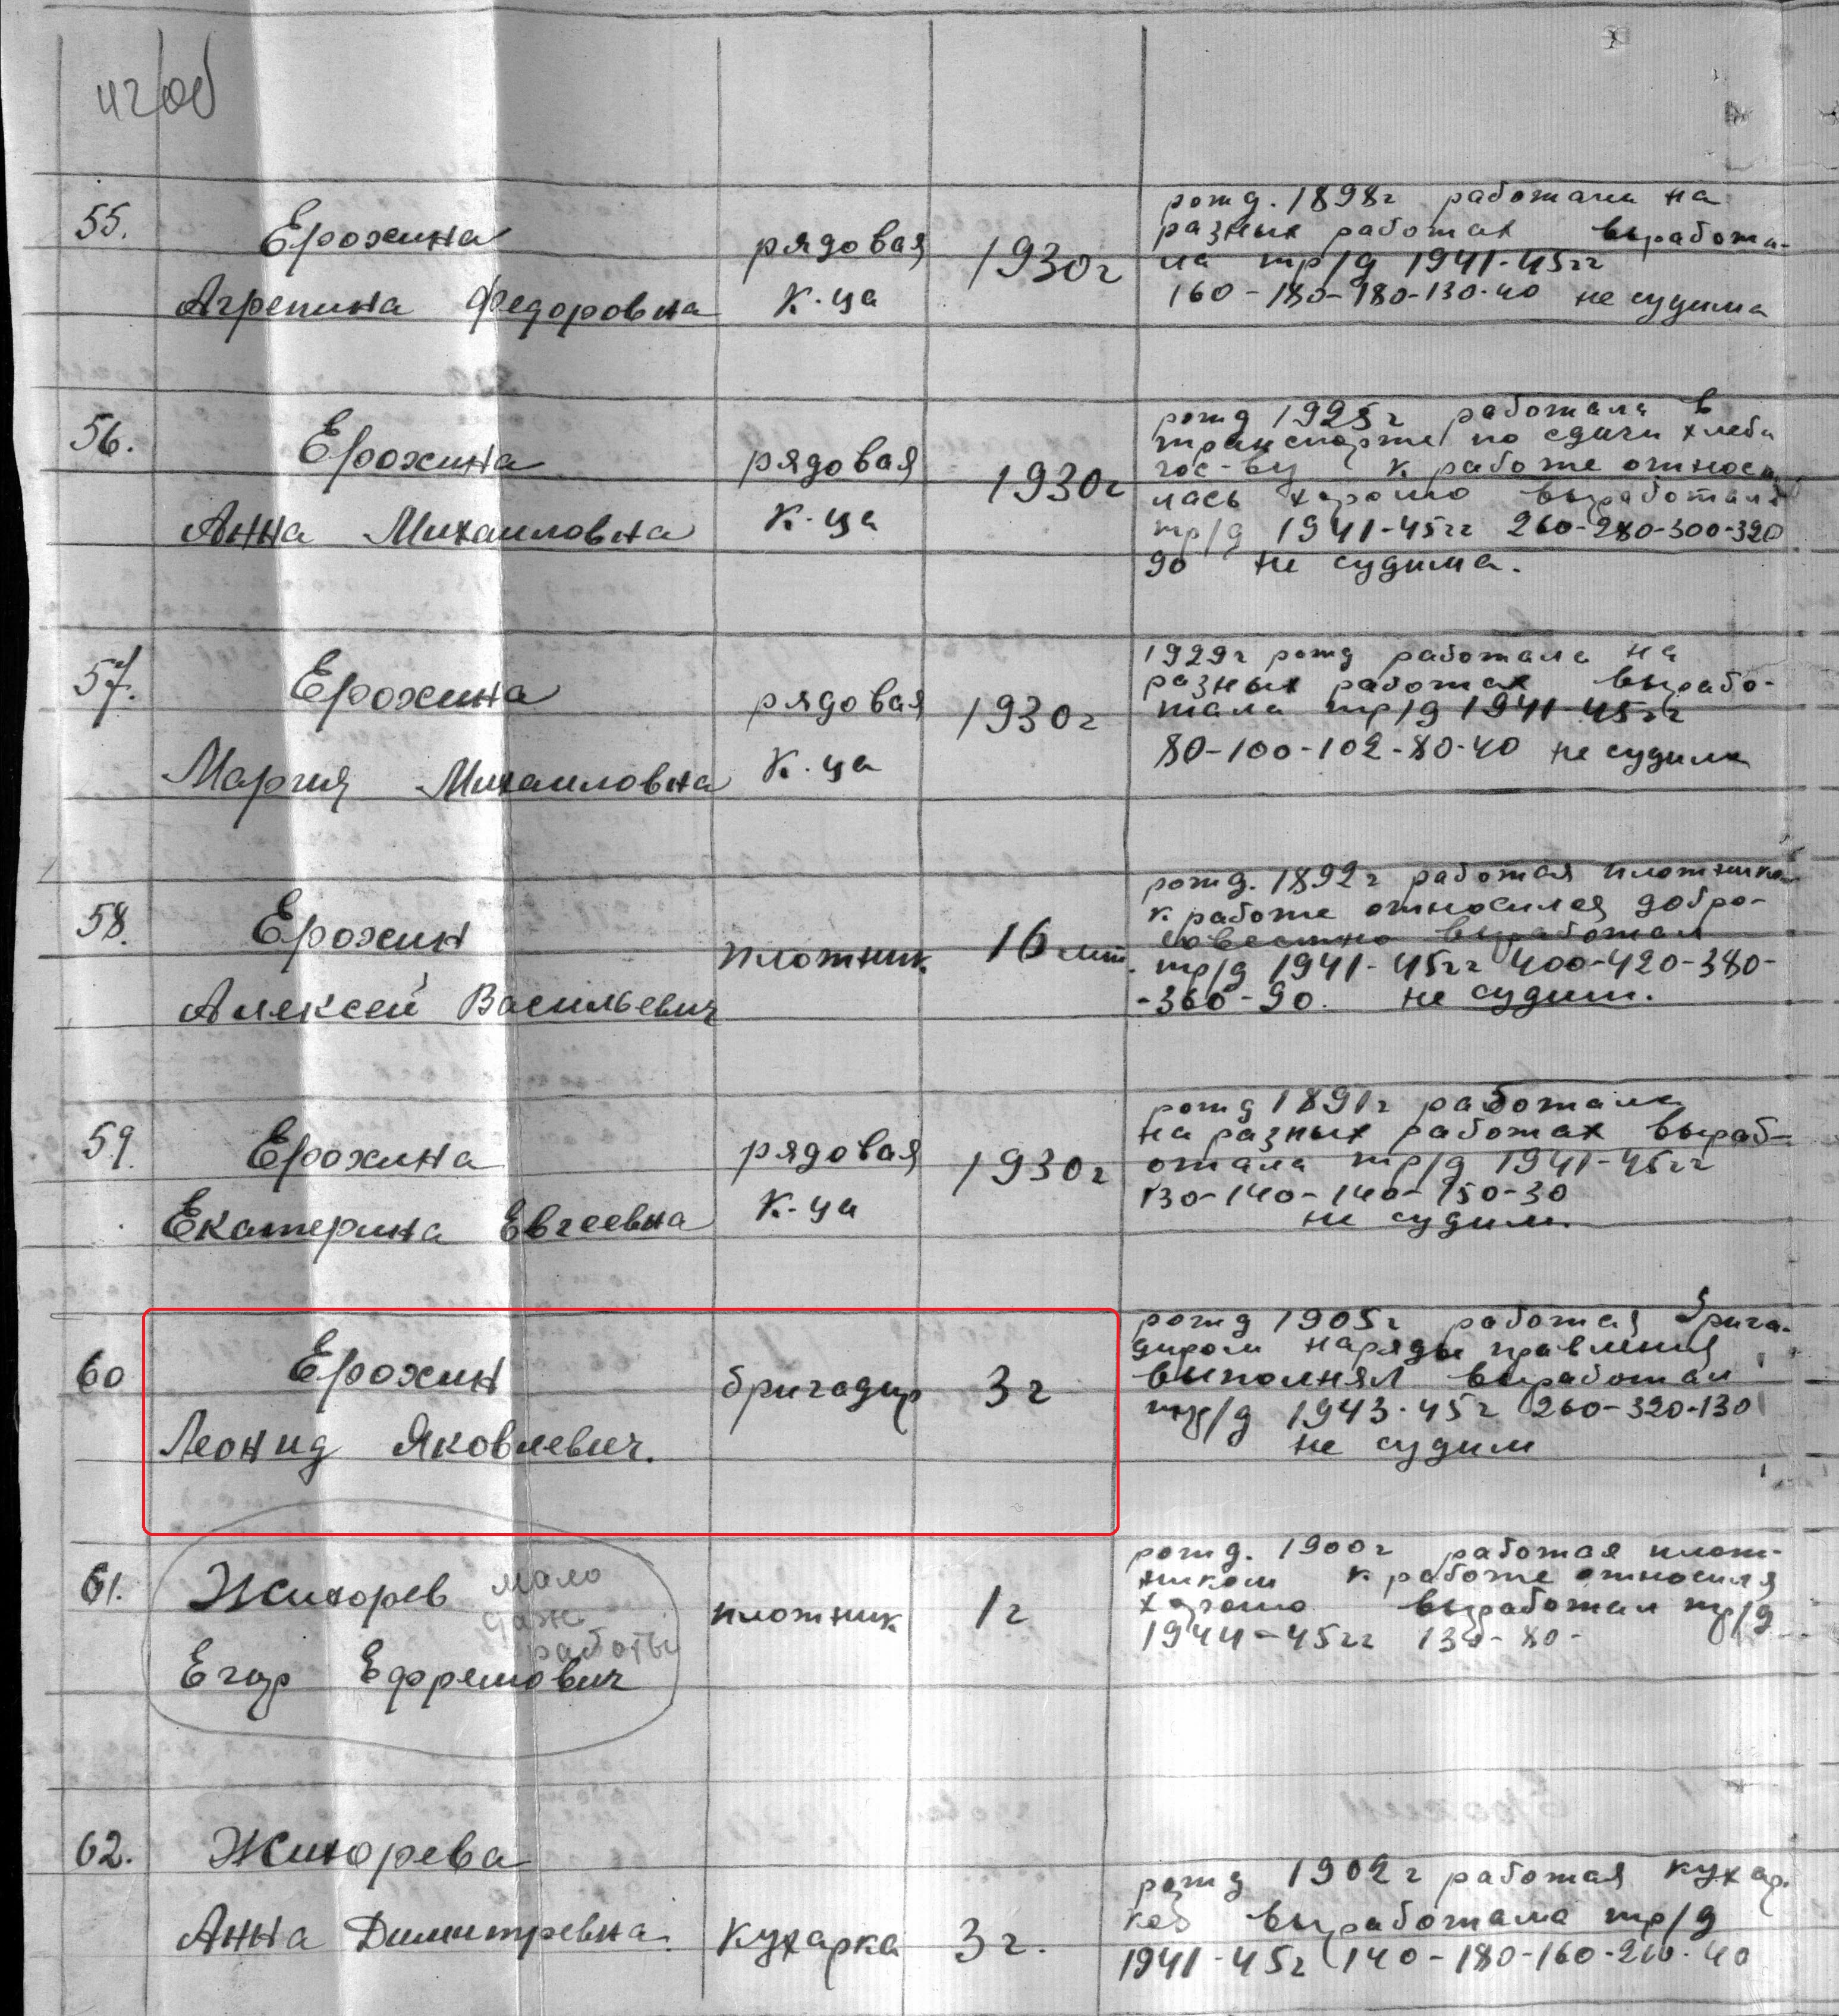 55.
Ерохина
Агрепина Федоровна
рядовая
к-ца
1930г
рожд. 1898г работала на
разных работах выработа-
ла тр/д 1941-45гг
160-180-180-130-40 не судима
56.
Ерохина
Анна Михаиловна
рядовая
к-ца
1930г
рожд 1925г работала в
транспорте по сдачи хлеба
гос-ву к работе относи
лась хорошо выработала
тр/д 1941-45гг 260-280-300-320
90 не судима.
57.
Ерохина
Мария Михаиловна
рядовая
к-ца
1930г
1929г рожд работала на
разных работах вырабо-
тала тр/д 1941-45гг
80-100-102-80-40 не судима
58.
Ерохин
Алексей Васильевич
плотник
16 лет.
рожд. 1892г работал плотником
к работе относился добро-
совестно выработал
тр/д 1941-45гг 400-420-380-
-360-90. не судим.
59.
Ерохина
Екатерина Евгеевна
рядовая
к-ца
1930г
рожд 1891г работала
на разных работах выраб-
отала тр/д 1941-45гг
130-140-140-150-30
не судим.
60
Ерохин
Леонид Яковлевич.
бригадир
3г
рожд 1905г работал брига-
диром наряды правления
выполнял выработал
тр/д 1943-45г 260-320-130
не судим
61.
Жихорев мало
даж
работы
Егор Ефремович
плотник
1г
рожд. 1900г работал плот-
ником к работе относился
хорошо выработал тр/д
1944-45гг 130-80-
62.
Жихорева
Анна Димитревна.
кухарка
3г.
рожд 1902г работал кухар.
кой выработала тр/д
1941-45г 140-180-160-200-40